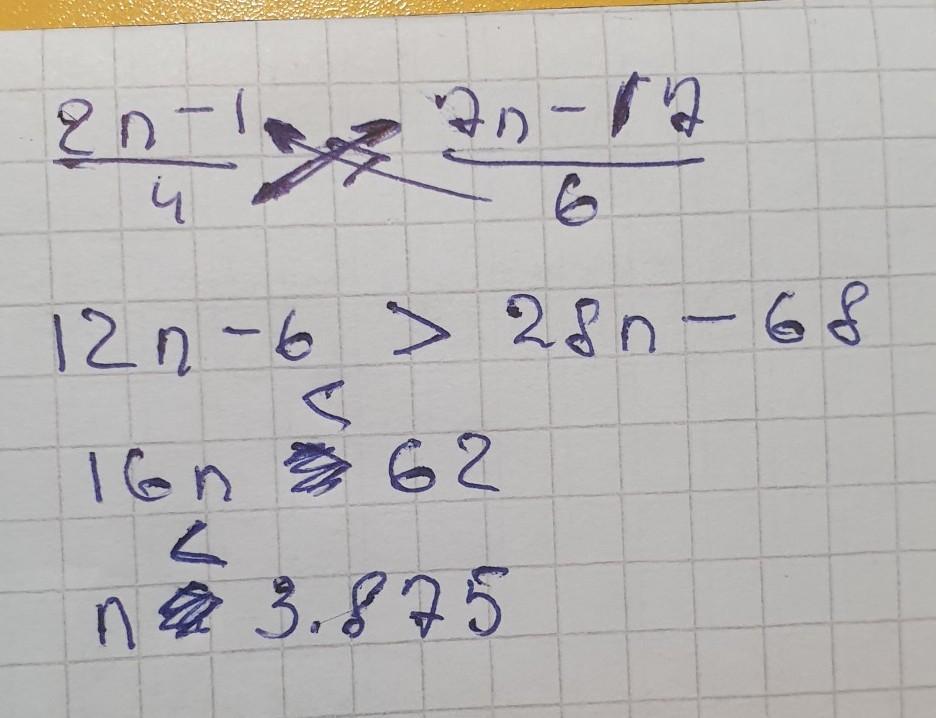 2n-1 7n-17
4 6
12n-6 > 28n-68
<
16n 62
<
n 3.875